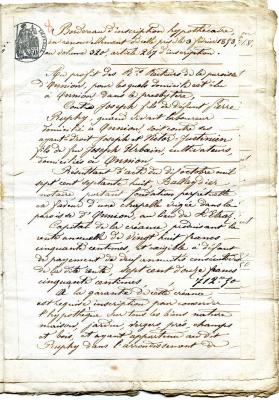 Bordereau d'inscription hypothécaire
en renouvellement de celle prise le 3 février 1873,
au volume 320, article 267 d'inscription.
Au profit des R.ds Recteurs de la paroisse
d'Onnion, pour lesquels domicile est élu
à Onnion dans le presbytère.
Contre Joseph fils de défunt Pierre
quand vivait laboureur
domicilié à Onnion soit contre ses
ayant droit
fils de feu Joseph Urbain, cultivateur,
domicilié à Onnion
Résultant d'acte du dix octobre mil
sept cent septante huit,
notaire portant fondation perpétuelle
en faveur d'une chapelle érigée dans la
paroisse d'Onnion, au lieu de
Capital de la créance produisant la
rente annuelle de vingt huit francs
cinquante centimes et exigible à défaut
de payement de deux annuités consécutives
de la dite rente, sept cent douze francs
cinquante centimes 712,,50
A la garantie de cette créance
est requise inscription pour conserver
l'hypothèque sur tous les biens nature
maisons, jardin, vergers, prés, champs
et bois, et ayant appartenu au dit
dans l'arrondissement de